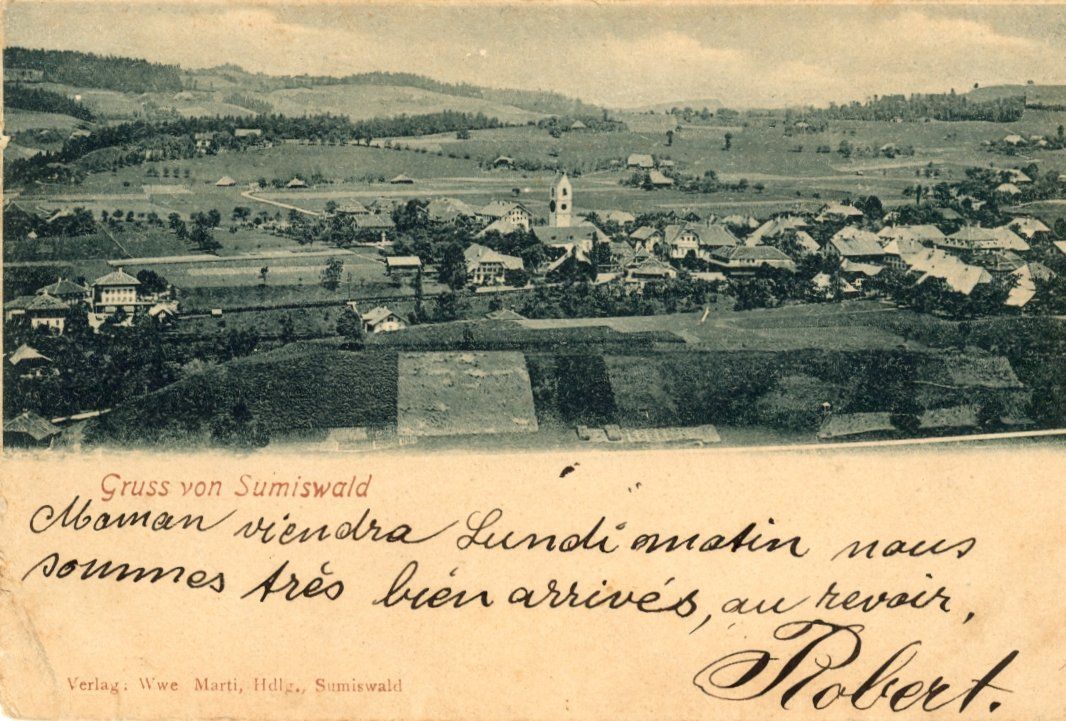 Gruss von Sumiswald
Maman viendra Lundi matin nous
sommes très bien arrivés, au revoir,
Robert.
Verlag: Wwe Marti, Hdlg., Sumiswald